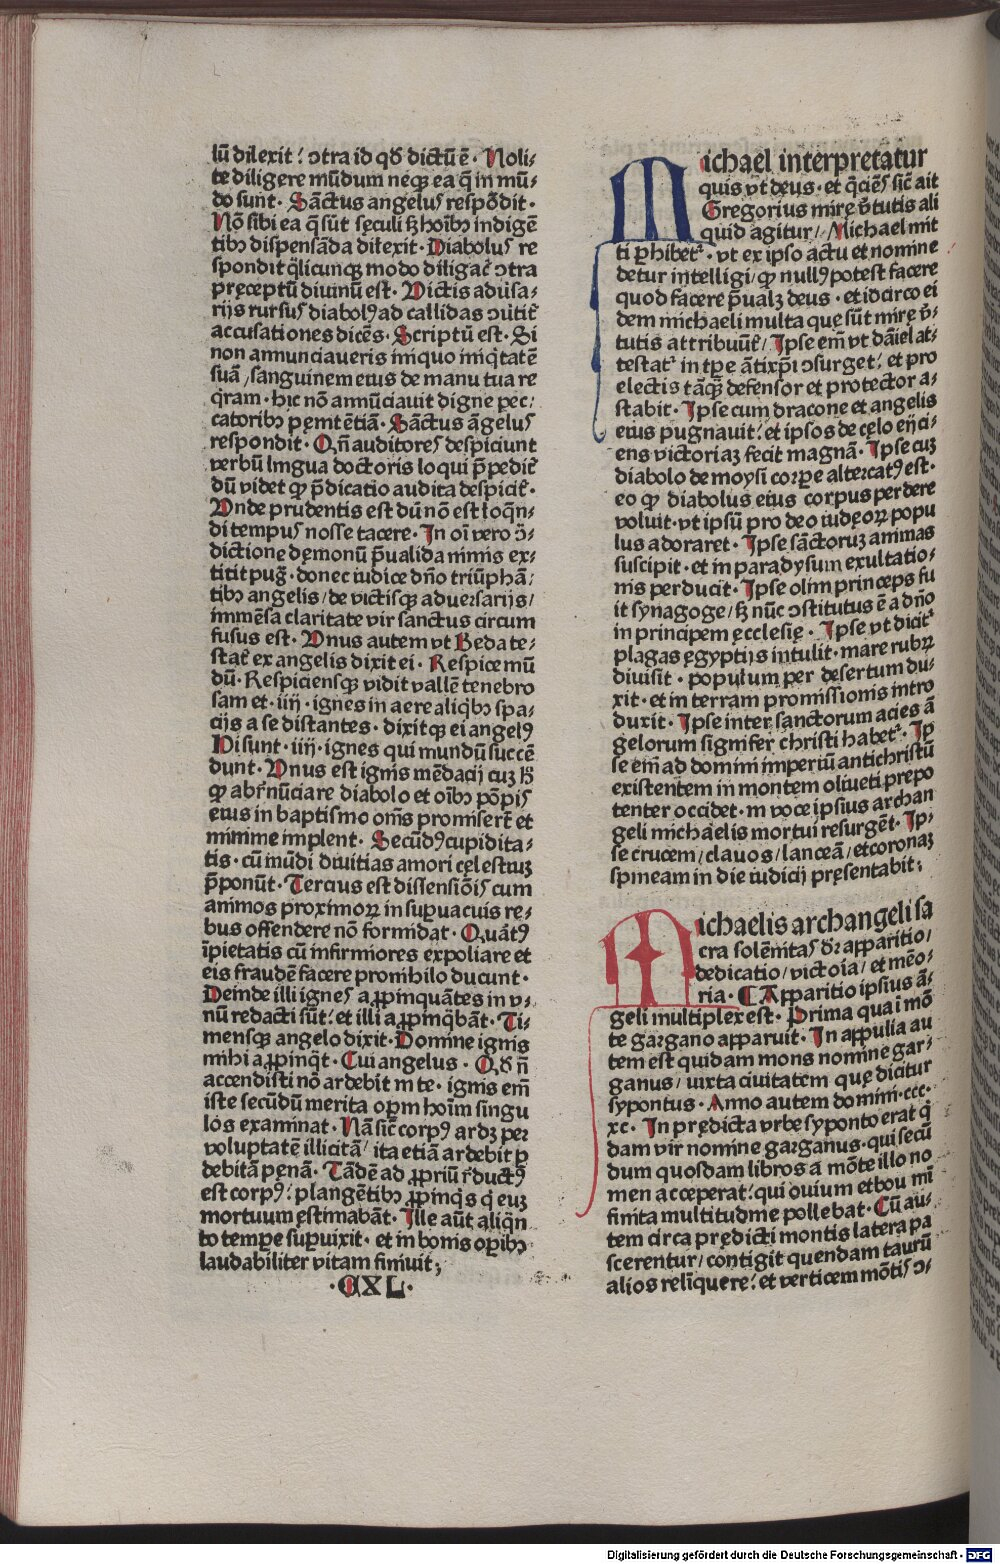 lū dilexit: ↄtra id qđ dictū ē· Noli-
te diligere mūdum neqꝫ ea q̄ in mū-
do sunt· Sāctus angelꝰ respōdit·
Nō sibi ea q̄ sūt seculi sꝫ hoībꝫ indigē
tibꝫ dispensāda dilexit· Diabolus re
spondit qͥlicunqꝫ modo diligat̄ ↄtra
pręceptū diuinū est· Dictis aduersa-
rijs rursus diabolꝰ ad callidas ↄuertit̄
accusationes dicēs· Scriptū est· Si
non annunciaueris iniquo iniqͥtatē
suā/sanguinem eius de manu tua re
qͥram· hic nō annūciauit digne pec/
catoribꝫ penitētiā· Sāctus āgelus
respondit· Qn̄ auditores despiciunt
verbū lingua doctoris loqui p̄pedit̄
dū videt ꝙ p̄dicatio audita despicit̄·
Vnde prudentis est dū nō est loqn̄-
di tempus nosse tacere· In oī vero ↄ̄-
dictione dęmonū p̄ualida nimis ex-
titit pug̃· donec iudice dn̄o triūphā/
tibꝫ angelis/de victisqꝫ aduersarijs/
immēsa claritate vir sanctus circum
fusus est· Vnus autem vt Beda te-
stat̄ ex angelis dixit ei· Respice mū
dū· Respiciensqꝫ vidit vallē tenebro
sam et· iiij· ignes in aere aliqͥbꝫ spa-
cijs a se distantes· dixitqꝫ ei angelꝰ
Hi sunt· iiij· ignes qui mundū succē
dunt· Vnus est ignis mēdacij cuꝫ hͦ
ꝙ abrn̄unciare diabolo et oībꝫ pōpis
eius in baptismo oms promiserūt et
minime implent· Secūdꝰ cupidita-
tis· cū mūdi diuitias amori cęlestiuꝫ
p̄ponūt· Tercius est dissensiōis cum
animos proximoꝝ in suꝑuacuis re-
bus offendere nō formidāt· Quātꝰ
īpietatis cū infirmiores expoliare et
eis fraudē facere pro nihilo ducunt·
Deinde illi ignes aꝓpinquātes in v-
nū redacti sūt: et illi aꝓpinqͣbāt· Ti-
mensqꝫ angelo dixit· Domine ignis
mihi aꝓpinqͣt· Cui angelus· Qđ n̄
accendisti nō ardebit in te· ignis em̄
iste secūdū merita oꝑm hoīm singu
los examinat· Nā sic̄ corpꝰ ardꝫ per
voluptatē illicitā/ ita etiā ardebit ꝑ
debitā pęnā· Tādē ad ꝓpriū r̄ductꝰ
est corpꝰ: plangētibꝫ ꝓpinqͥs qͥ euꝫ
mortuum ęstimabāt· Ille aūt aliqn̄
to tempe suꝑuixit· et in bonis oꝑibꝫ
laudabiliter vitam finiuit;
·CXL·
Michael interpretatur
quis vt deus· et qͦciēs sic̄ ait
Gregorius mirę v̄tutis ali
quid agitur/ Michael mit
ti ꝑhibetͬ· vt ex ipso actu et nomine
detur intelligi/ ꝙ nullꝰ potest facere
quod facere p̄ualꝫ deus· et idcirco ei
dem michaeli multa quę sūt mirę v̄-
tutis attribuūt̄/ Ipse em̄ vt dāiel at-
testatͬ in tꝑe ātixp̄i ↄsurget: et pro
electis tāqͣꝫ defensor et protector a-
stabit· Ipse cum dracone et angelis
eius pugnauit: et ipsos de cęlo eijci-
ens victoriaꝫ fecit magnā· Ipse cuꝫ
diabolo de moysi corpe altercatꝰ est·
eo ꝙ diabolus eius corpus perdere
voluit· vt ipsū pro deo iudęoꝝ popu
lus adoraret· Ipse sāctoruꝫ animas
suscipit· et in paradysum exultatio-
nis perducit· Ipse olim princeps fu
it synagoge/ sꝫ nūc ↄstitutus ē a dn̄o
in principem ecclesię· Ipse vt dicitͬ
plagas ęgyptijs intulit· mare rubꝝ
diuisit· populum per desertum du-
xit· et in terram promissionis intro
duxit· Ipse inter sanctorum acies ā
gelorum signifer christi habetͬ· Ip
se em̄ ad domini imperiū antichristū
existentem in montem oliueti prępo
tenter occidet· in voce ipsius archan
geli michaelis mortui resurgēt· Ip-
se crucem/clauos/lanceā/et coronaꝫ
spineam in die iudicij pręsentabit;
Michaelis archangeli sa
cra solēnitas dr̄ apparitio/
dedicatio/victoīa/ et mēo-
ria· C Apparitio ipsius ā-
geli multiplex est· Prima qua ī mō
te gargano apparuit· In appulia au
tem est quidam mons nomine gar-
ganus/ iuxta ciuitatem quę dicitur
sypontus· Anno autem domini·ccc·
xc· In prędicta vrbe syponto erat qͥ
dam vir nomine garganus· qui secū
dum quosdam libros a mōte illo no
men acceperat: qui ouium et bou inī
finita multitudine pollebat· Cū au-
tem circa prędicti montis latera pa
scerentur/ contigit quendam taurū
alios relīquere: et verticem mōtis ↄ-
Digitalisierung gefördert durch die Deutsche Forschungsgemeinschaft - DFG